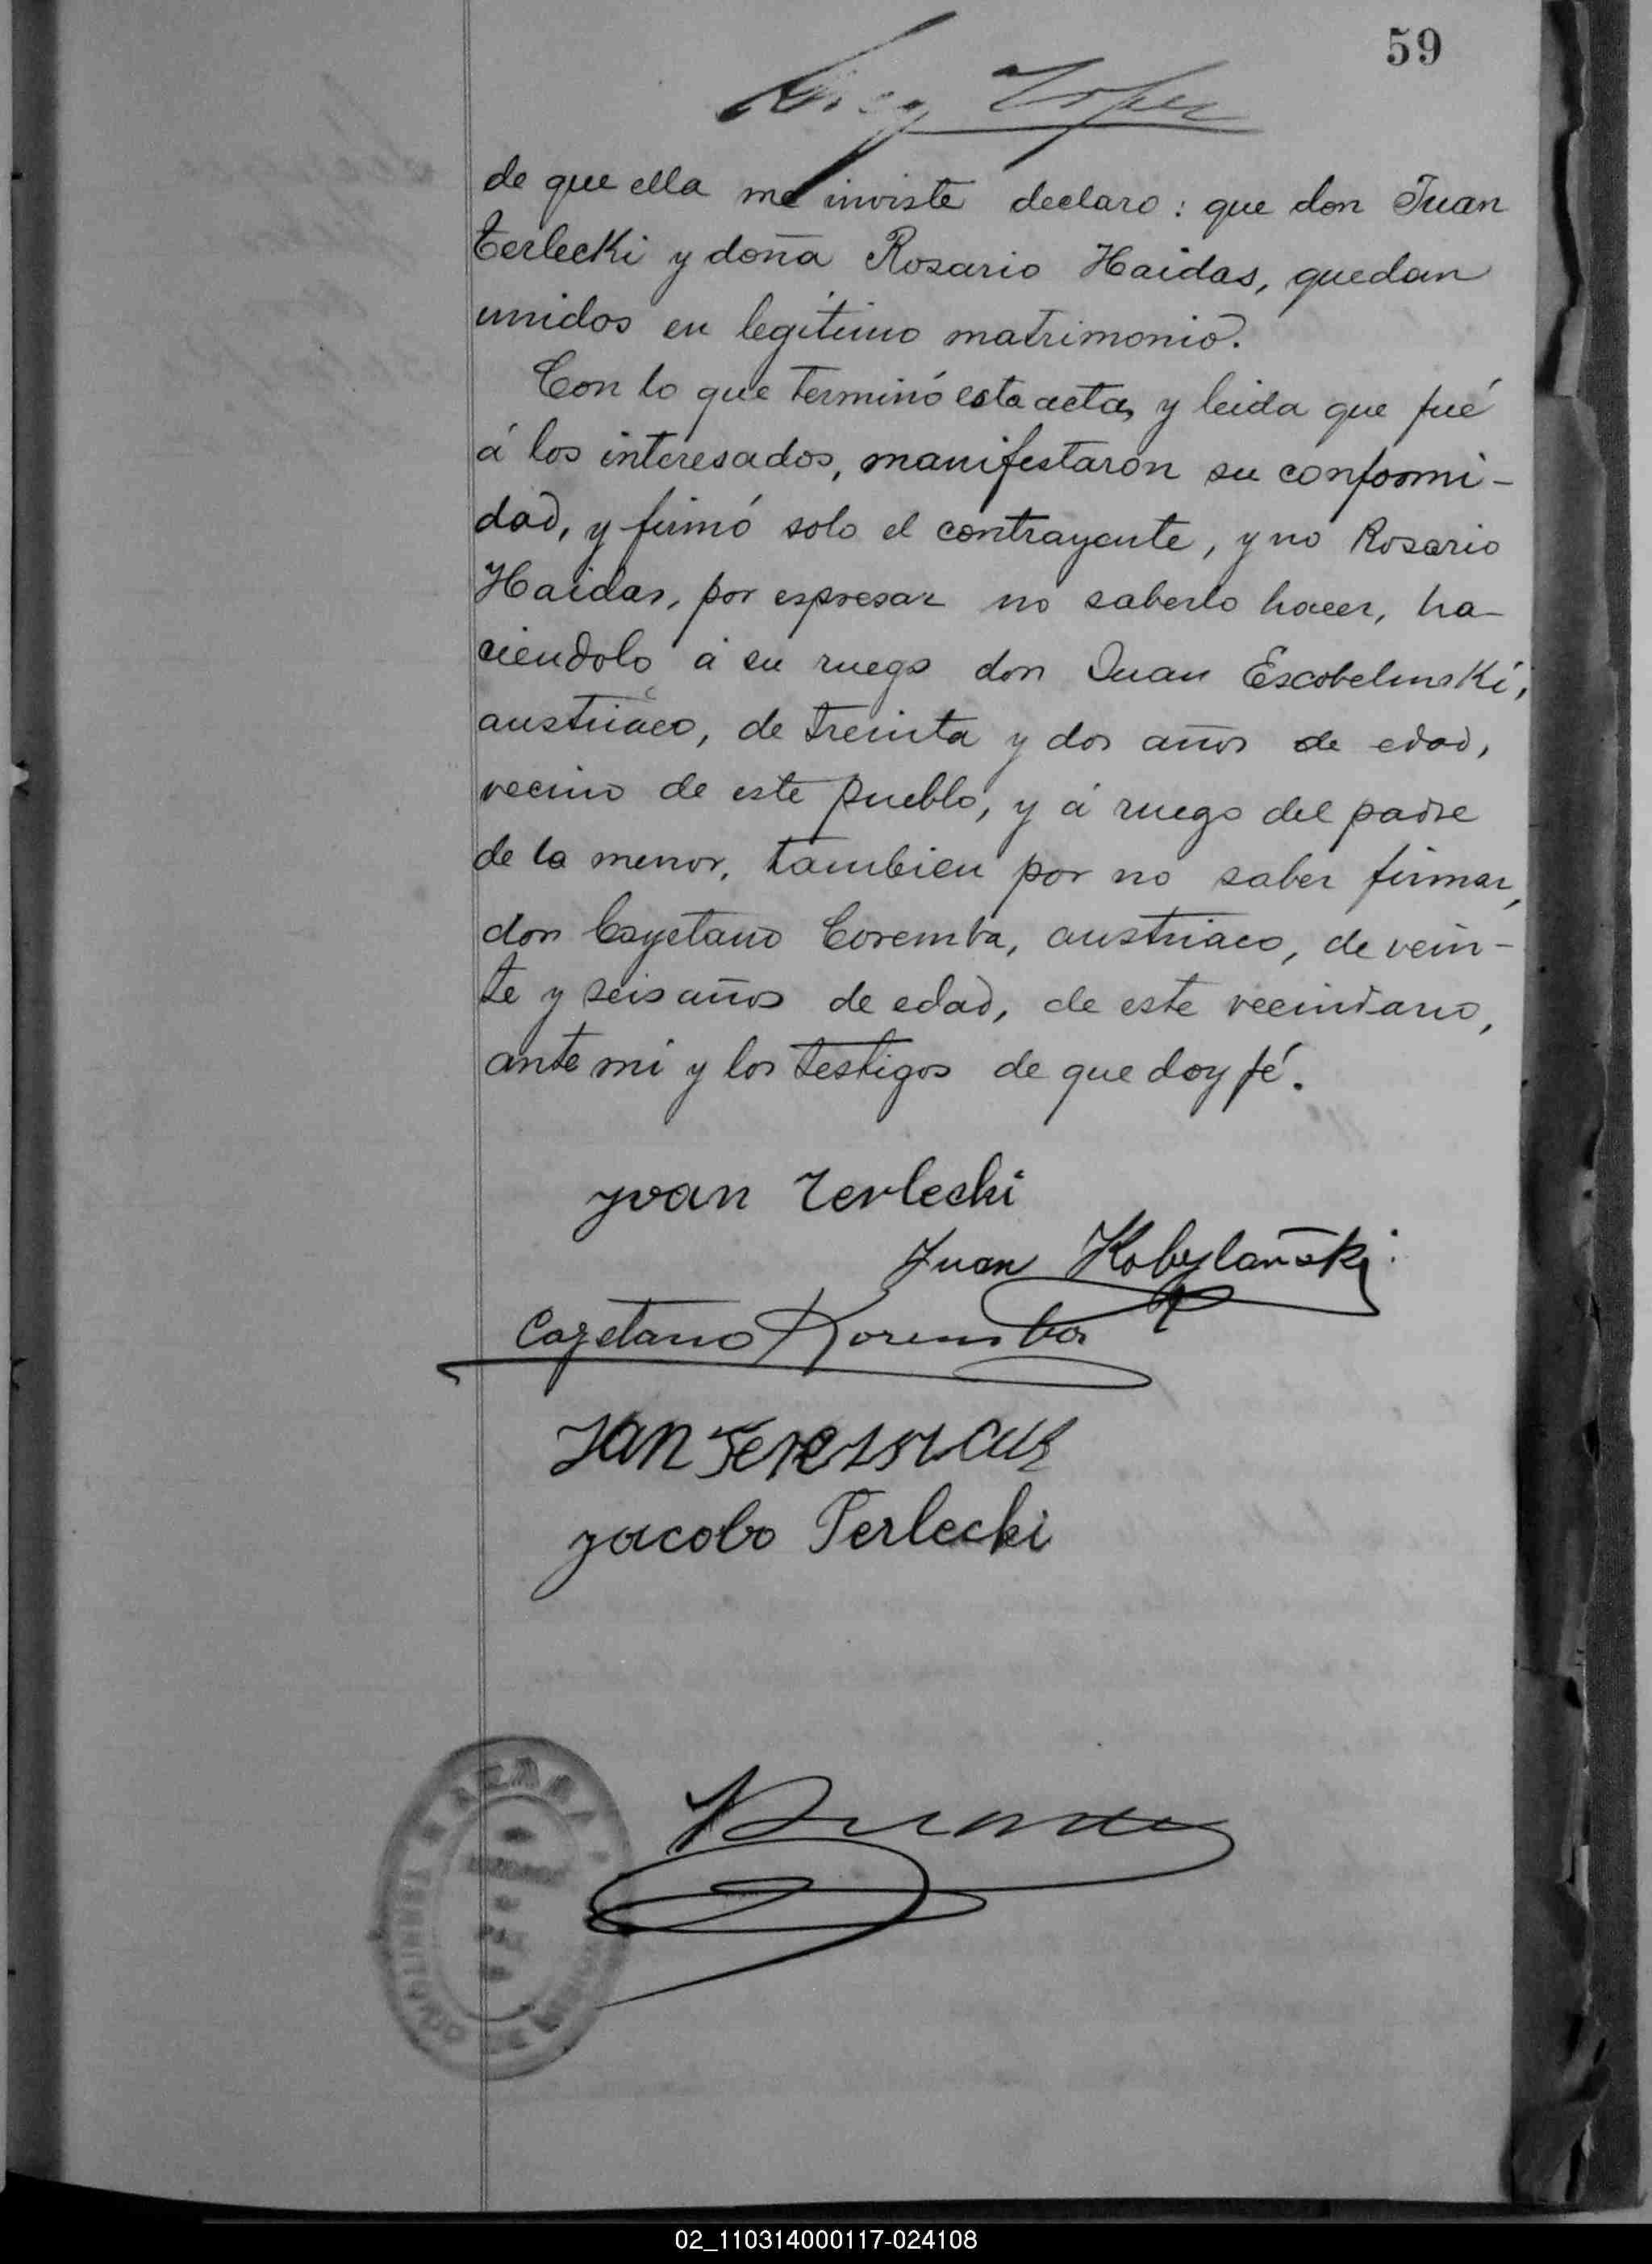 59
Lopez
de que ella me inviste declaro: que don Juan
Terlecki y doña Rosario Haidas, quedan
unidos en legítimo matrimonio.
Con lo que terminó esta acta, y leida que fué
á los interesados, manifestaron su conformi-
dad, y firmó solo el contrayente, y no Rosario
Haidas, por espresar no saberlo hacer, ha-
ciendolo á su ruego don Juan Escobelinski,
austriaco, de treinta y dos años de edad,
vecino de este pueblo, y á ruego del padre
de la menor, tambien por no saber firmar,
don Cayetano Coremba, austriaco, de vein-
te y seis años de edad, de este vecindario,
ante mi y los testigos de que doy fé.
Yvan Terlecki
Juan Kobylañski
Cayetano Koremba
Jan
Jacobo Terlecki
02_110314000117-024108